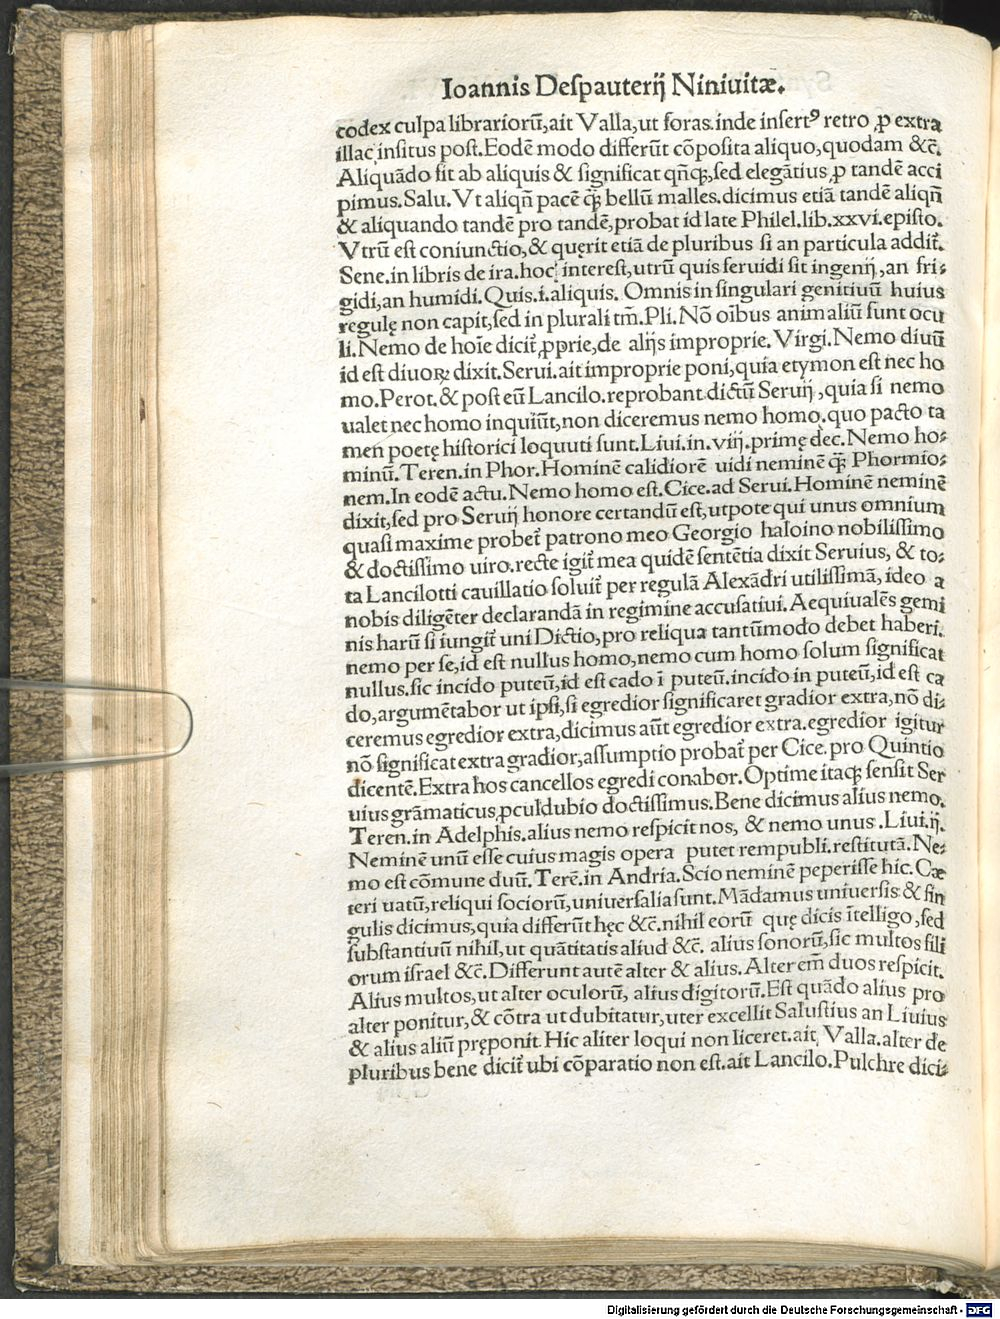 Ioannis Deſpauterij Niniuitæ.
codex culpa librariorū, ait Valla, ut foras. inde inſertꝰ retro ꝓ extra
illac inſitus poſt. Eodē modo differūt cōpoſita aliquo, quodam &c̄.
Aliquādo fit ab aliquis & ſignificat qn̄qꝫ, ſed elegātius ꝓ tandē acci
pimus. Salu. Vt aliqn̄ pacē q̄ꝫ bellū malles. dicimus etiā tandē aliqn̄
& aliquando tandē pro tandē, probat id late Philel. lib. xxvi. epiſto.
Vtrū eſt coniunctio, & quęrit etiā de pluribus ſi an particula addit᷑.
Sene. in libris de ira. hoc intereſt, utrū quis feruidi ſit ingenij, an fri⸗
gidi, an humidi. Quis. i. aliquis. Omnis in ſingulari genitiuū huius
regulę non capit, ſed in plurali tm̄. Pli. Nō oībus animaliū ſunt ocu
li. Nemo de hoīe dicit᷑ ꝓprie, de alijs improprie. Virgi. Nemo diuū
id eſt diuoꝝ dixit. Serui. ait improprie poni, quia etymon eſt nec ho
mo. Perot. & poſt eū Lancilo. reprobant dictū Seruij, quia ſi nemo
ualet nec homo inquiūt, non diceremus nemo homo. quo pacto ta
men poetę hiſtorici loquuti ſunt. Liui. in. viij. primę dec. Nemo ho⸗
minū. Teren. in Phor. Hominē calidiorē uidi neminē q̄ꝫ Phormio⸗
nem. In eodē actu. Nemo homo eſt. Cice. ad Serui. Hominē neminē
dixit, ſed pro Seruij honore certandū eſt, utpote qui unus omnium
quaſi maxime probet᷑ patrono meo Georgio haloino nobiliſſimo
& doctiſſimo uiro. recte igit᷑ mea quidē ſentētia dixit Seruius, & to⸗
ta Lancilotti cauillatio ſoluit᷑ per regulā Alexādri utiliſſimā, ideo a
nobis diligēter declarandā in regimine accuſatiui. Aequiualēs gemi
nis harū ſi iungit᷑ uni Dictio, pro reliqua tantūmodo debet haberi.
nemo per ſe, id eſt nullus homo, nemo cum homo ſolum ſignificat
nullus. ſic incido puteū, id eſt cado ī puteū. incido in puteū, id eſt ca
do, argumētabor ut ipſi, ſi egredior ſignificaret gradior extra, nō di⸗
ceremus egredior extra, dicimus aūt egredior extra. egredior igitur
nō ſignificat extra gradior, aſſumptio probat᷑ per Cice. pro Quintio
dicentē. Extra hos cancellos egredi conabor. Optime itaqꝫ ſenſit Ser
uius grāmaticus ꝓculdubio doctiſſimus. Bene dicimus alius nemo.
Teren. in Adelphis. alius nemo reſpicit nos, & nemo unus. Liui. ij.
Neminē unū eſſe cuius magis opera putet rempubli. reſtitutā. Ne⸗
mo eſt cōmune duū. Terē. in Andria. Scio neminē peperiſſe hic. Cæ
teri uatū, reliqui ſociorū, uniuerſalia ſunt. Mādamus uniuerſis & ſin
gulis dicimus, quia differūt hęc &c̄. nihil eorū quę dicis ītelligo, ſed
ſubſtantiuū nihil, ut quātitatis aliud &c̄. alius ſonorū, ſic multos fili
orum iſrael &c̄. Differunt autē alter & alius. Alter em̄ duos reſpicit.
Alius multos, ut alter oculorū, alius digitorū. Eſt quādo alius pro
alter ponitur, & cōtra ut dubitatur, uter excellit Saluſtius an Liuius
& alius aliū pręponit. Hic aliter loqui non liceret. ait Valla. alter de
pluribus bene dicit᷑ ubi cōparatio non eſt. ait Lancilo. Pulchre dici⸗
Digitalisierung gefördert durch die Deutsche Forschungsgemeinschaft - DFG